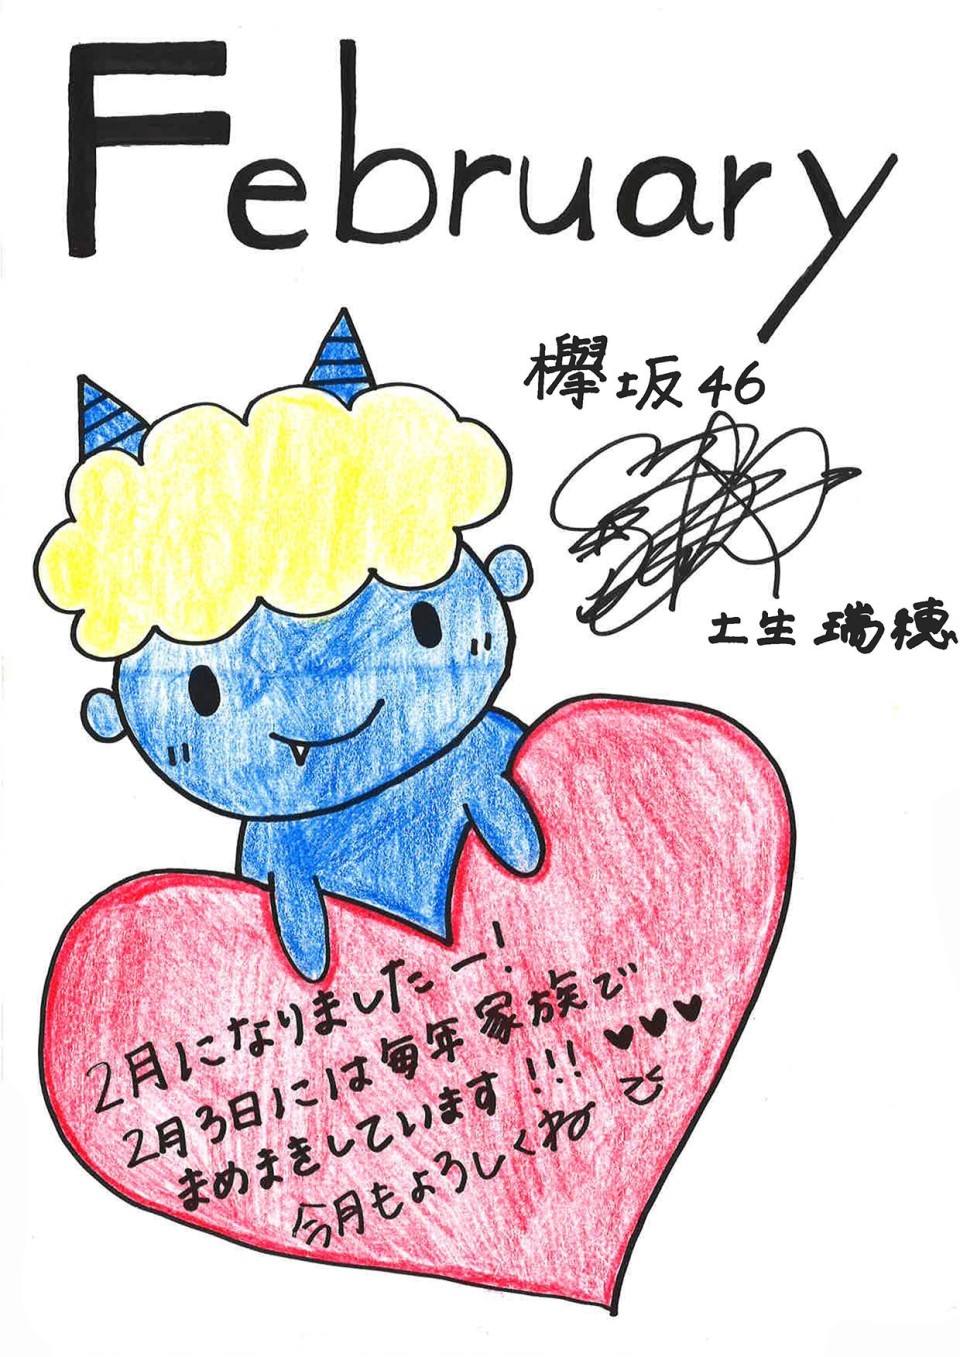 February
欅坂46
土生瑞穂
2月になりましたー!
2月3日には毎年家族で
まめまきしています!!! ♥♥♥
今月もよろしくね